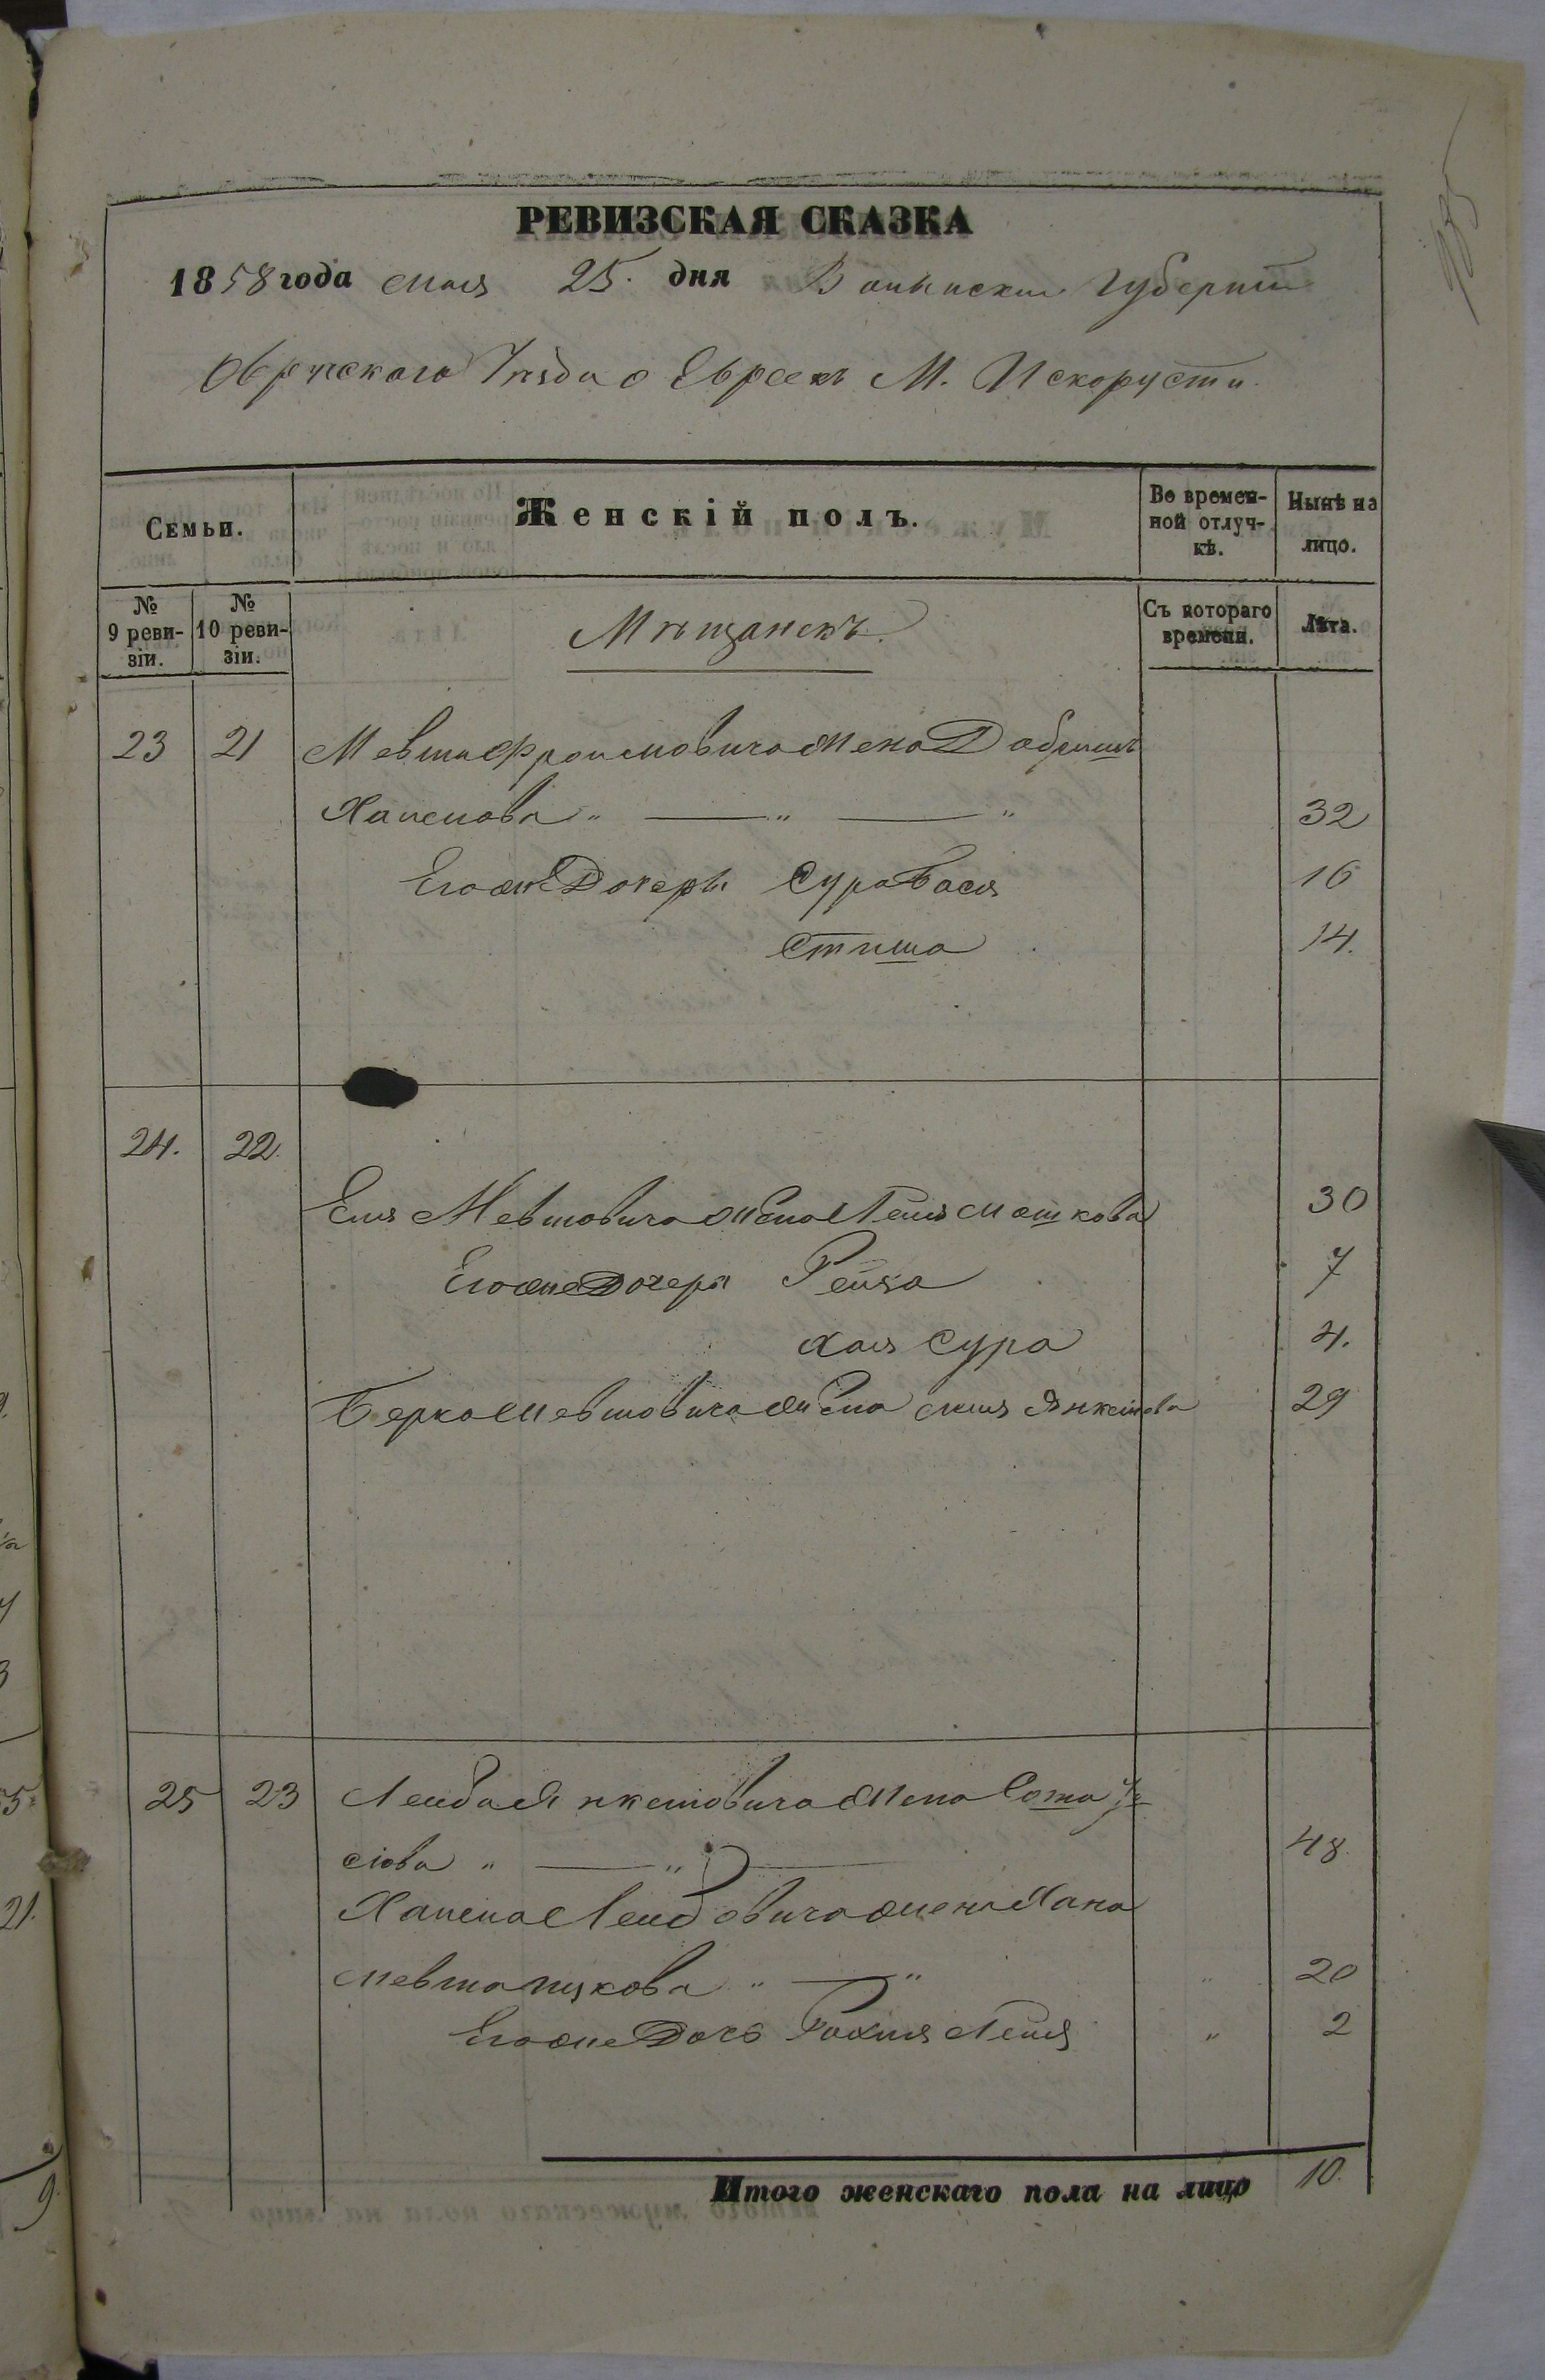 РЕВИЗСКАЯ СКАЗКА
1858 года мая 25. дня Волынской Губернiи
Овручскаго Уѣзда о Евреекъ М. Искорусти.
Семьи.
Женскiй полъ.
Во времен-
ной отлуч-
кѣ.
Нынѣ на
лицо.
№
9 реви-
зiи.
№
10 реви-
зiи.
Мѣщанекъ.
Съ котораго
времени.
Лѣта.
23 21 Мевши Фроимовича жена Добрышъ
Хаимова " — " — " 32
Егоже Дочери Сура Бася 16
14.
24. 22.
Еля Мевшовича жена Лея Мошкова 30
Егоже Дочери Рейза 7
Хая Сура 4.
Берка Мевшовича жена Янкелева 29
25 23 Лейба Янкелювича жена
" — " — 48.
Хаима Лейбовича жена Хана
" — " " 20
Егоже Дочь Рохля Лея " 2
Итого женскаго пола на лицо 10.